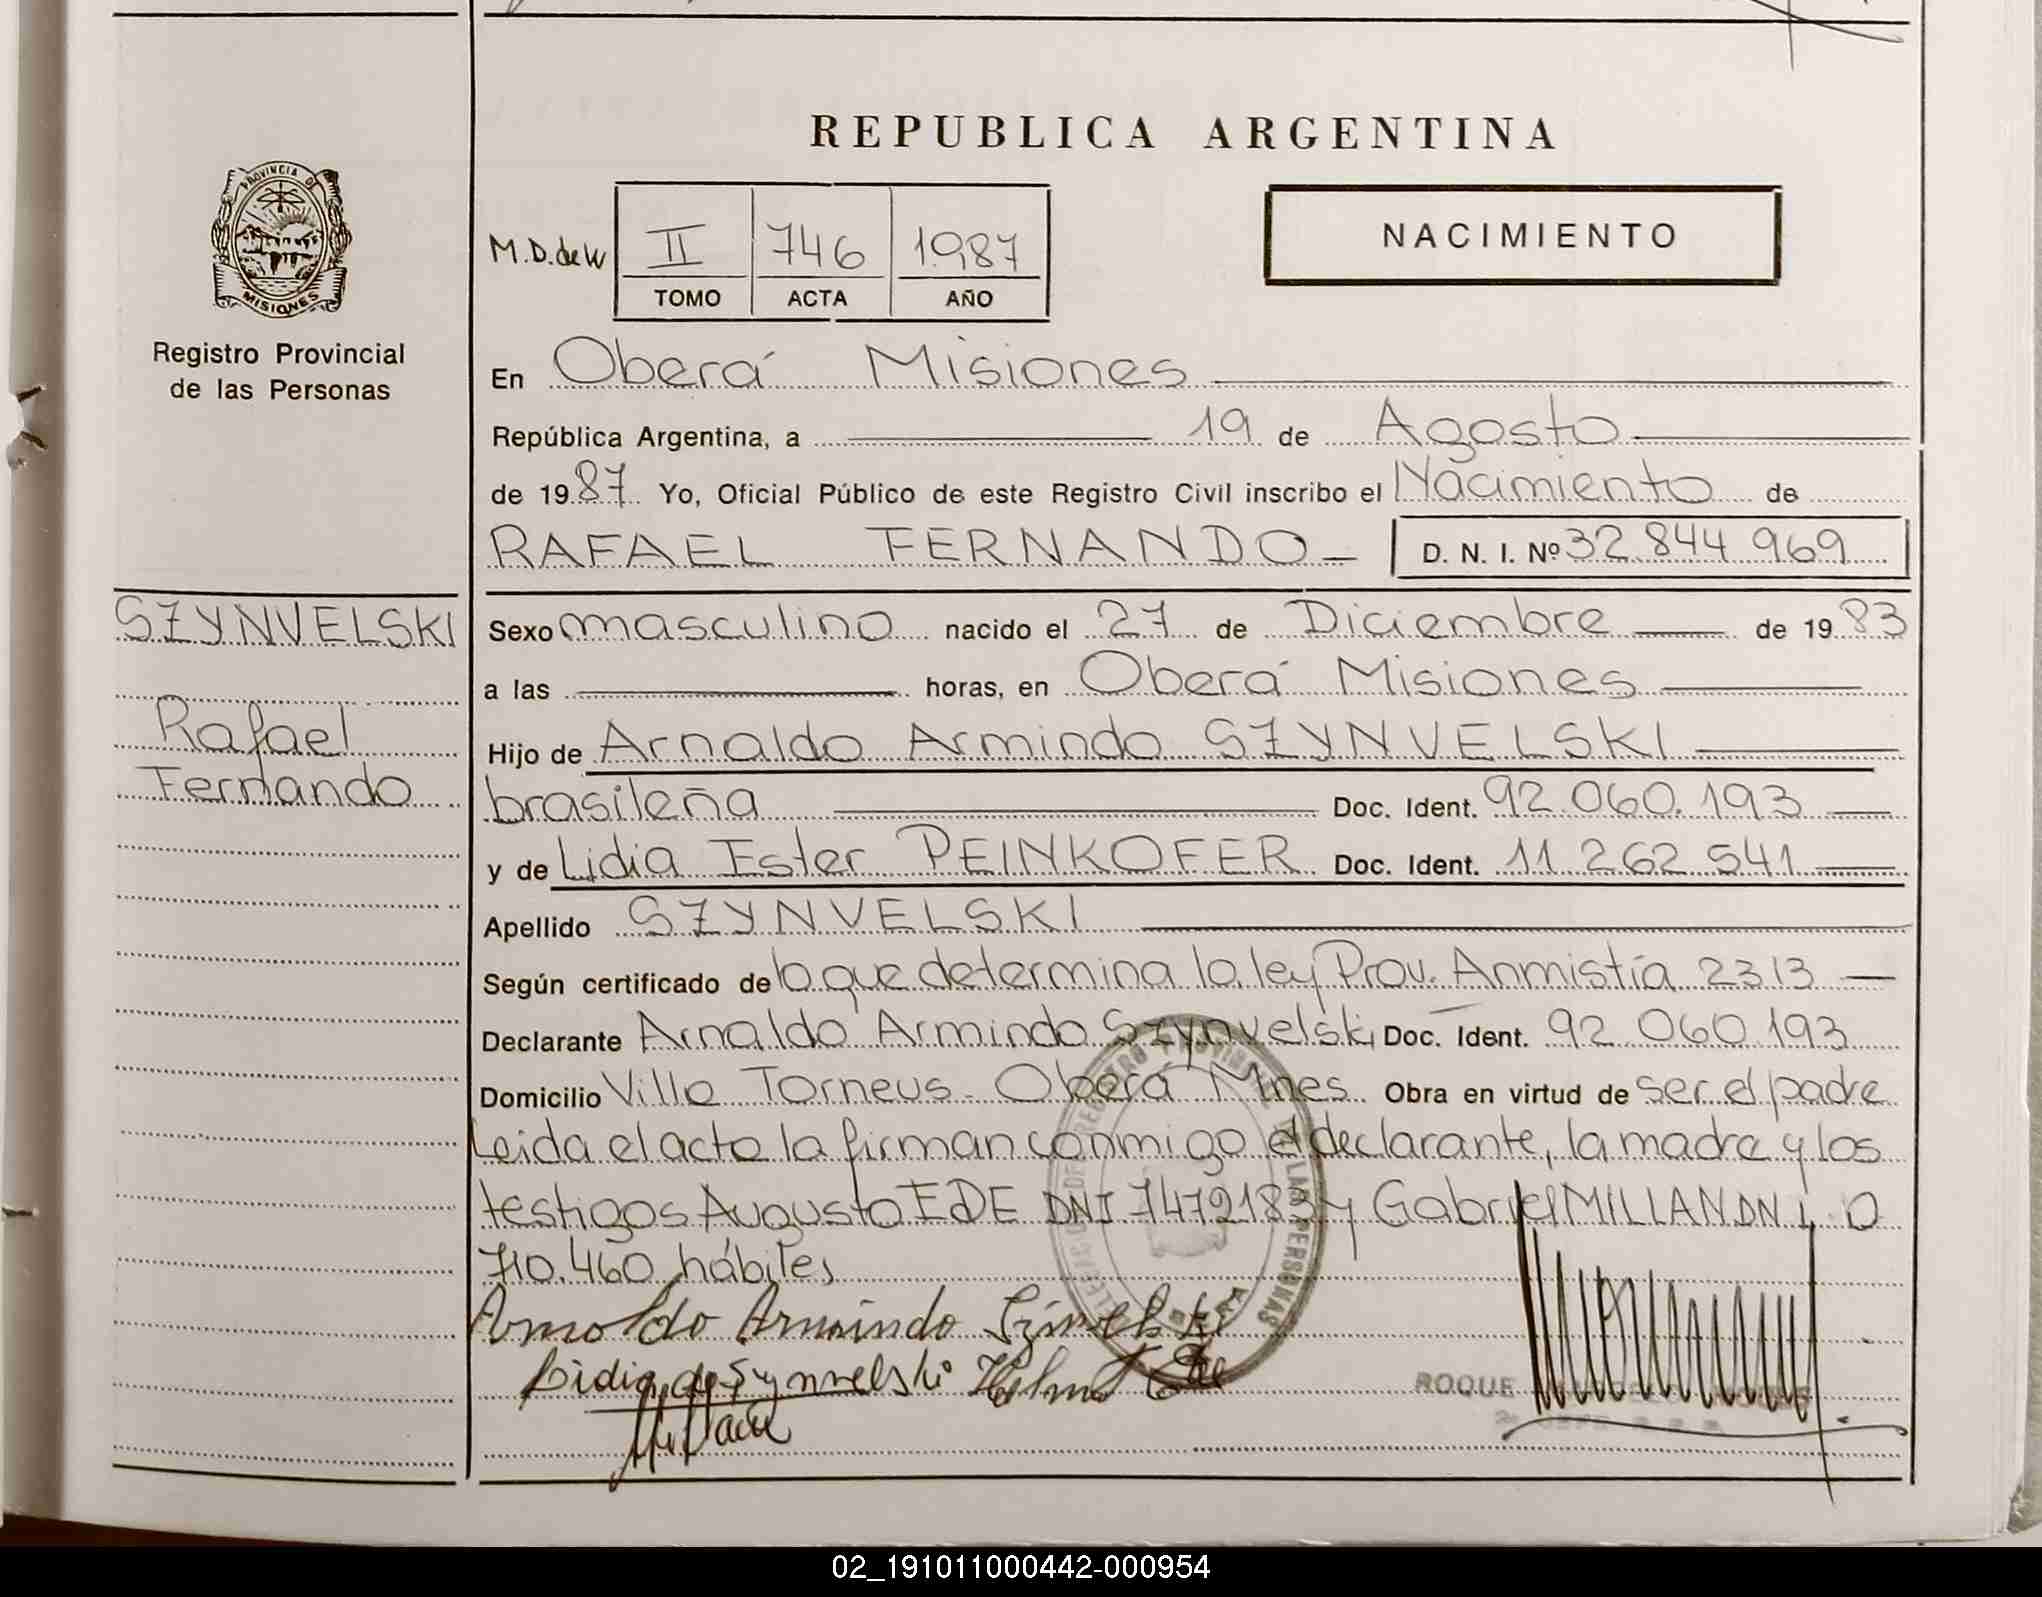 REPUBLICA ARGENTINA
PROVINCIA DE
MISIONES
Registro Provincial
de las Personas
M.D. de W
II 746 1987
TOMO ACTA AÑO
NACIMIENTO
En Oberá Misiones
República Argentina, a 19 de Agosto
de 1987 Yo, Oficial Público de este Registro Civil inscribo el Nacimiento de
RAFAEL FERNANDO D. N. I. Nº 32.844.969
SZYNVELSKI
Rafael
Fernando
Sexo masculino nacido el 27 de Diciembre de 1983
a las horas, en Oberá Misiones
Hijo de Arnaldo Armindo SZYNVELSKI
brasileña Doc. Ident. 92.060.193
y de Lidia Ester PEINKOFER Doc. Ident. 11.262.541
Apellido SZYNVELSKI
Según certificado de lo que determina la ley Prov. Anmistía 2313
Declarante Arnaldo Armindo Szynvelski Doc. Ident. 92.060.193
Domicilio Villa Torneus - Oberá Mnes. Obra en virtud de ser el padre
Leida el acta la firman conmigo el declarante, la madre y los
testigos Augusto EDE DNI 7472183 y Gabriel MILLAN DN I. 0
710.460 hábiles
REGISTRO PROVINCIAL DE LAS PERSONAS
Arnoldo Armindo
Lidia de
ROQUE
02_191011000442-000954